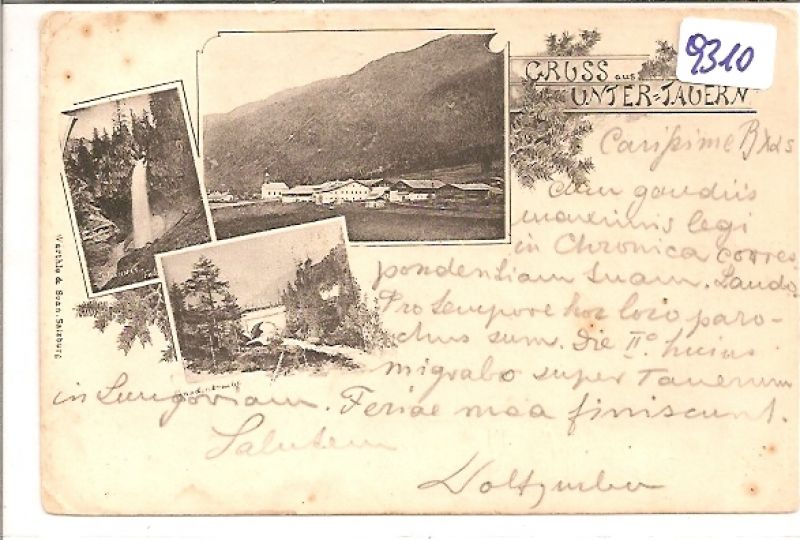 9310
GRUSS aus
UNTER=TAUERN
Carissime
cum gaudiis
maximis legi
in Chronica corres
pondentiam tuam. Laudo.
Pro tempore hoc loco paro-
chus sum. Die II° huius
migrabo super Tauerum
in Lungoviam. Feriae mea finiscunt.
Salutem
Würthle & Sohn Salzburg